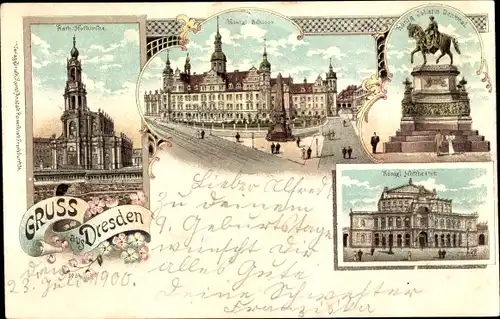 Kath. Hofkirche
Königl. Schloss
König Johann Denkmal
Königl. Hoftheater
GRUSS
aus Dresden
Lieber Alfred
zu deinem
9. Geburtstage
wünscht dir
alles Gute
deine Schwester
Franziska
23. Juli 1900.